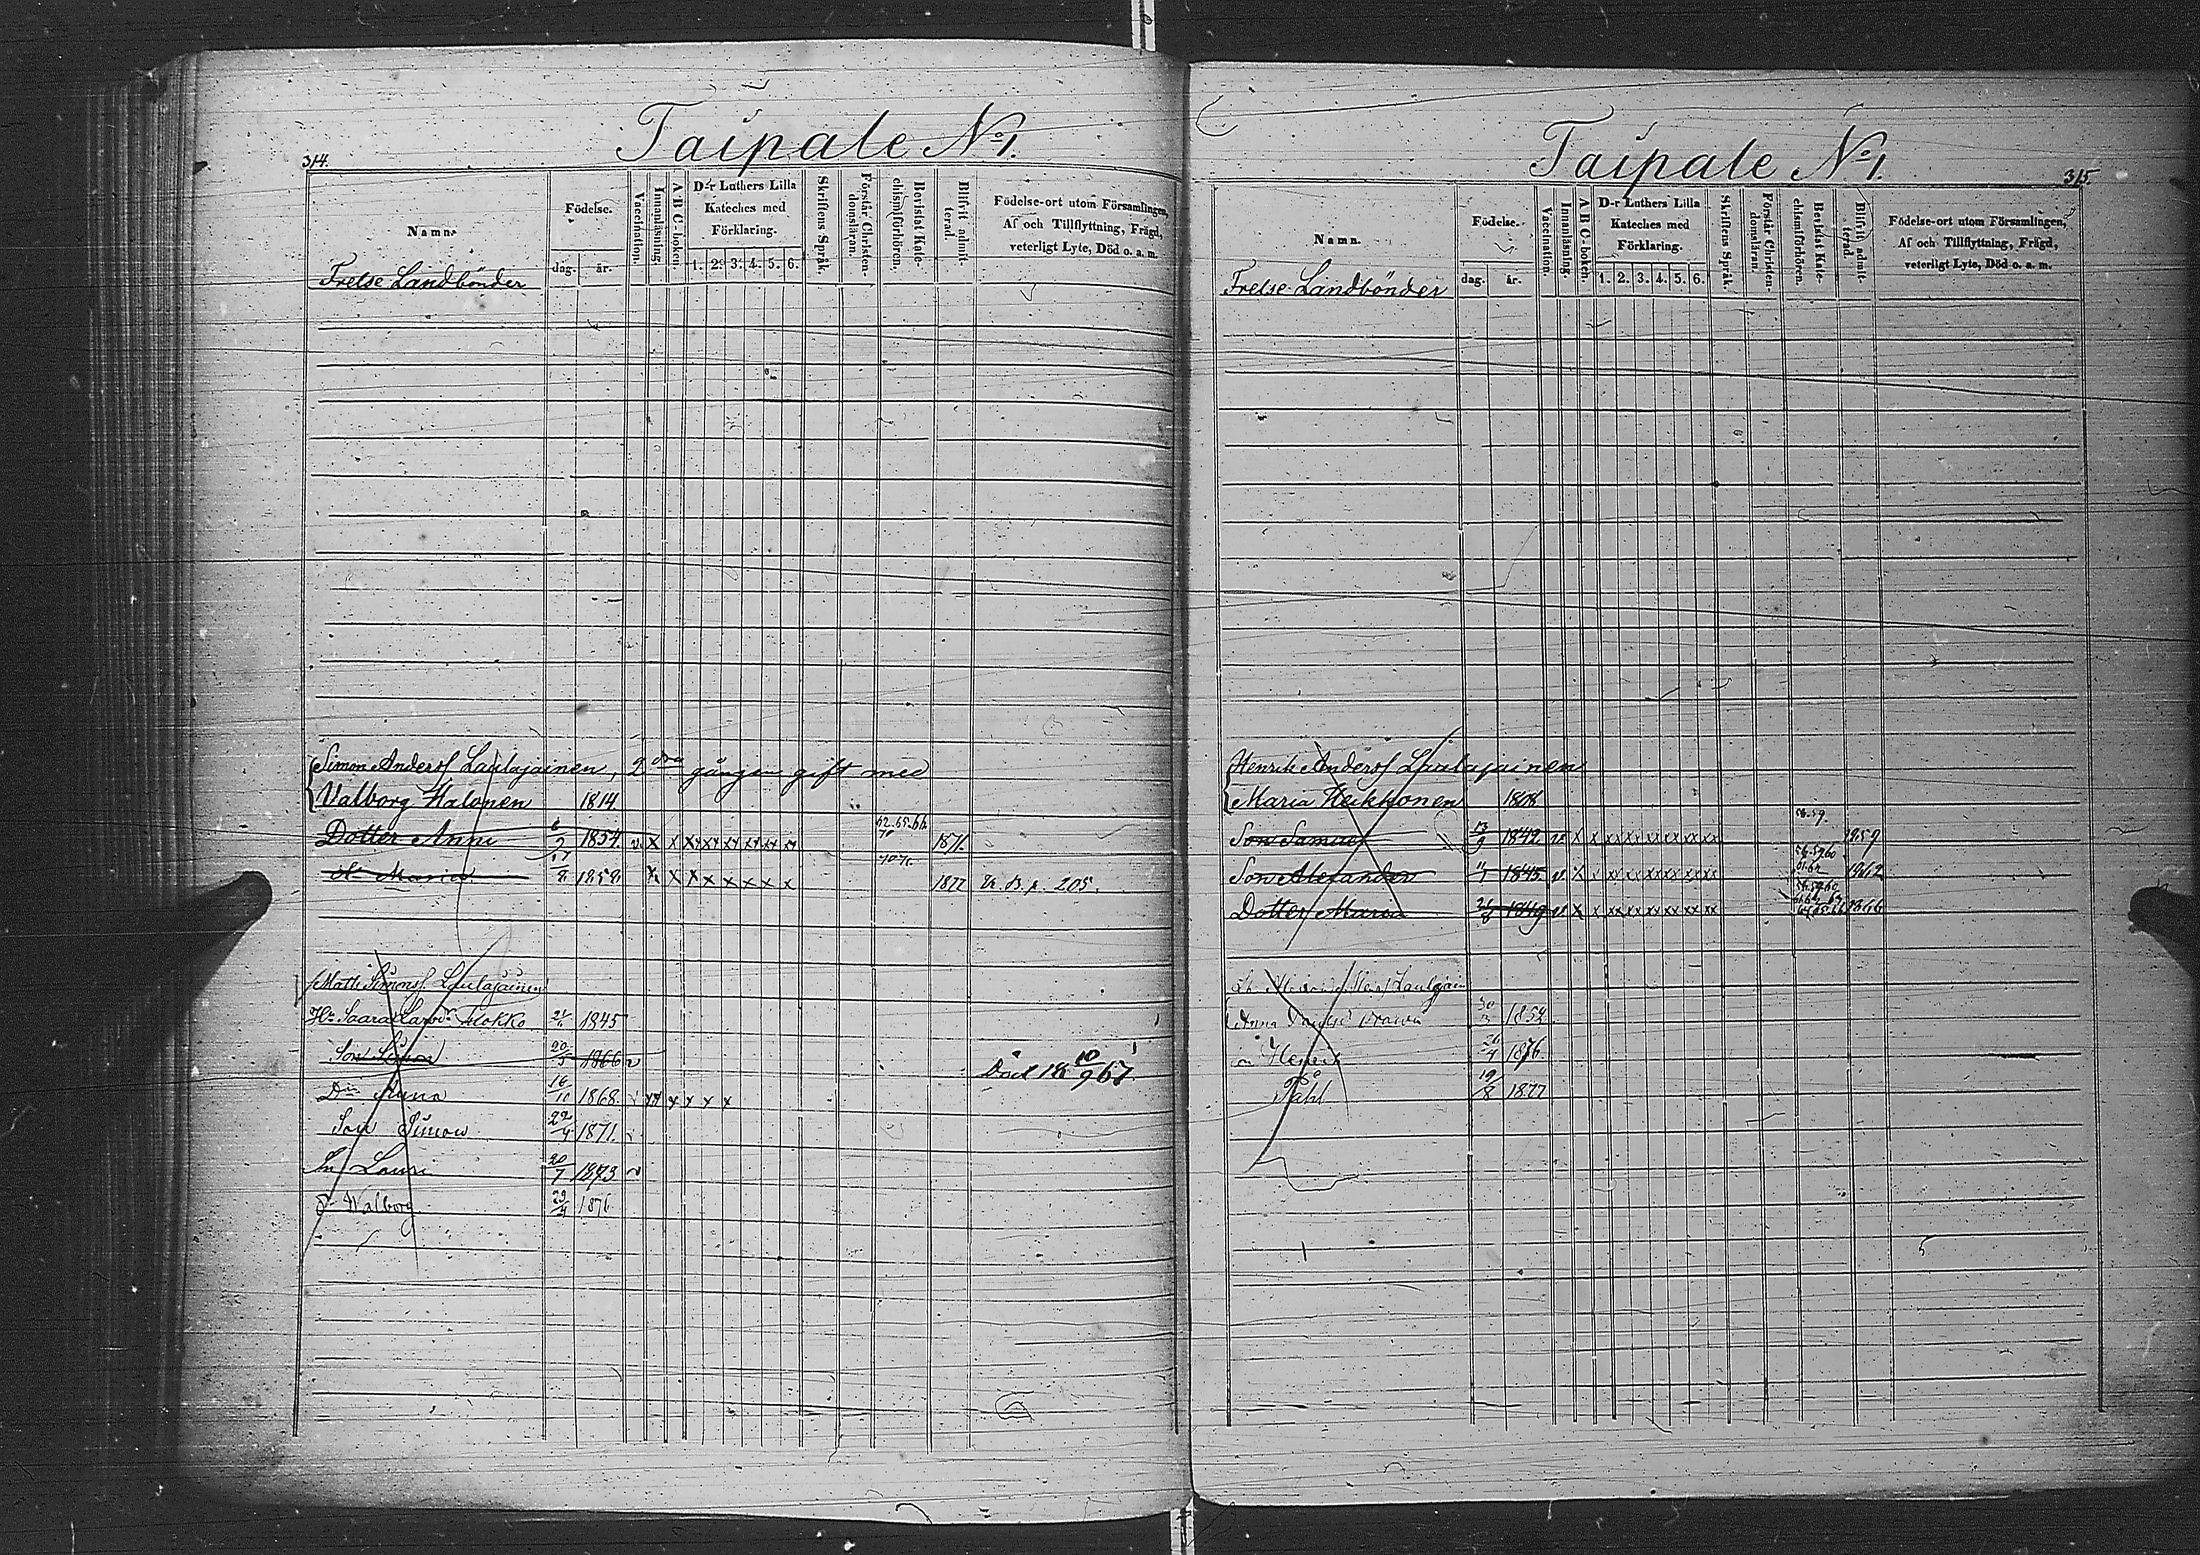 314.
Taipale No 1.
Namn.
Födelse.
dag.
år.
Vaccination.
Innanläsning.
A B C - boken.
D-r Luthers Lilla
Kateches med
Förklaring.
1. 2. 3. 4. 5. 6.
Skriftens Språk.
Förstår Christen-
domsläran.
Bevistat Kate-
chismiförhören.
Blifvit admit-
terad.
Födelse-ort utom Församlingen,
Af och Tillflyttning, Frägd,
veterligt Lyte, Död o. a. m.
Frelse Landbönder
Simon Anderss Laulajainen, 2dra gången gift med
Valborg Halonen 1814
Dotter Anni 6/2 1854. v x x x x x x x x 62.65.66. 70 1871.
Dr Maria 17/8 1858 x x x x x x x x 70.71. 1877 K. B. p. 205.
Matts Simonss. Laulajainen
Hu Saara Larsdr 24/ 1845
Son Simon 20/5 1866 v Död 18 10/9 67.
Dr Anna 16/10 1868. v xx x x x x
Son Simon 22/4 1871.
Sn Lauri 20/7 1873 v
Dr Walborg 29/4 1876
Taipale No 1.
315.
Namn.
Födelse.
dag.
år.
Vaccination.
Innanläsning.
A B C - boken.
D-r Luthers Lilla
Kateches med
Förklaring.
1. 2. 3. 4. 5. 6.
Skriftens Språk.
Förstår Christen-
domsläran.
Bevistat Kate-
chismiförhören.
Blifvit admit-
terad.
Födelse-ort utom Församlingen,
Af och Tillflyttning, Frägd,
veterligt Lyte, Död o. a. m.
Frelse Landbönder
Henrik Anderss Laulajainen
Maria Heikkonen 1808
Son Samuel 13/9 1842 v x x xx xx xx xx xx xx 58.59. 1859
Son Alexander 1845 v x x xx xx xx xx xx xx 58.59.60 61.62 1862
Dotter Maria 1849 v x x xx xx xx xx xx xx 58.59.60 1866
Laulajain
Anna 30/3 1854
Henrik 26/4 1876.
Påhl 19/8 1877